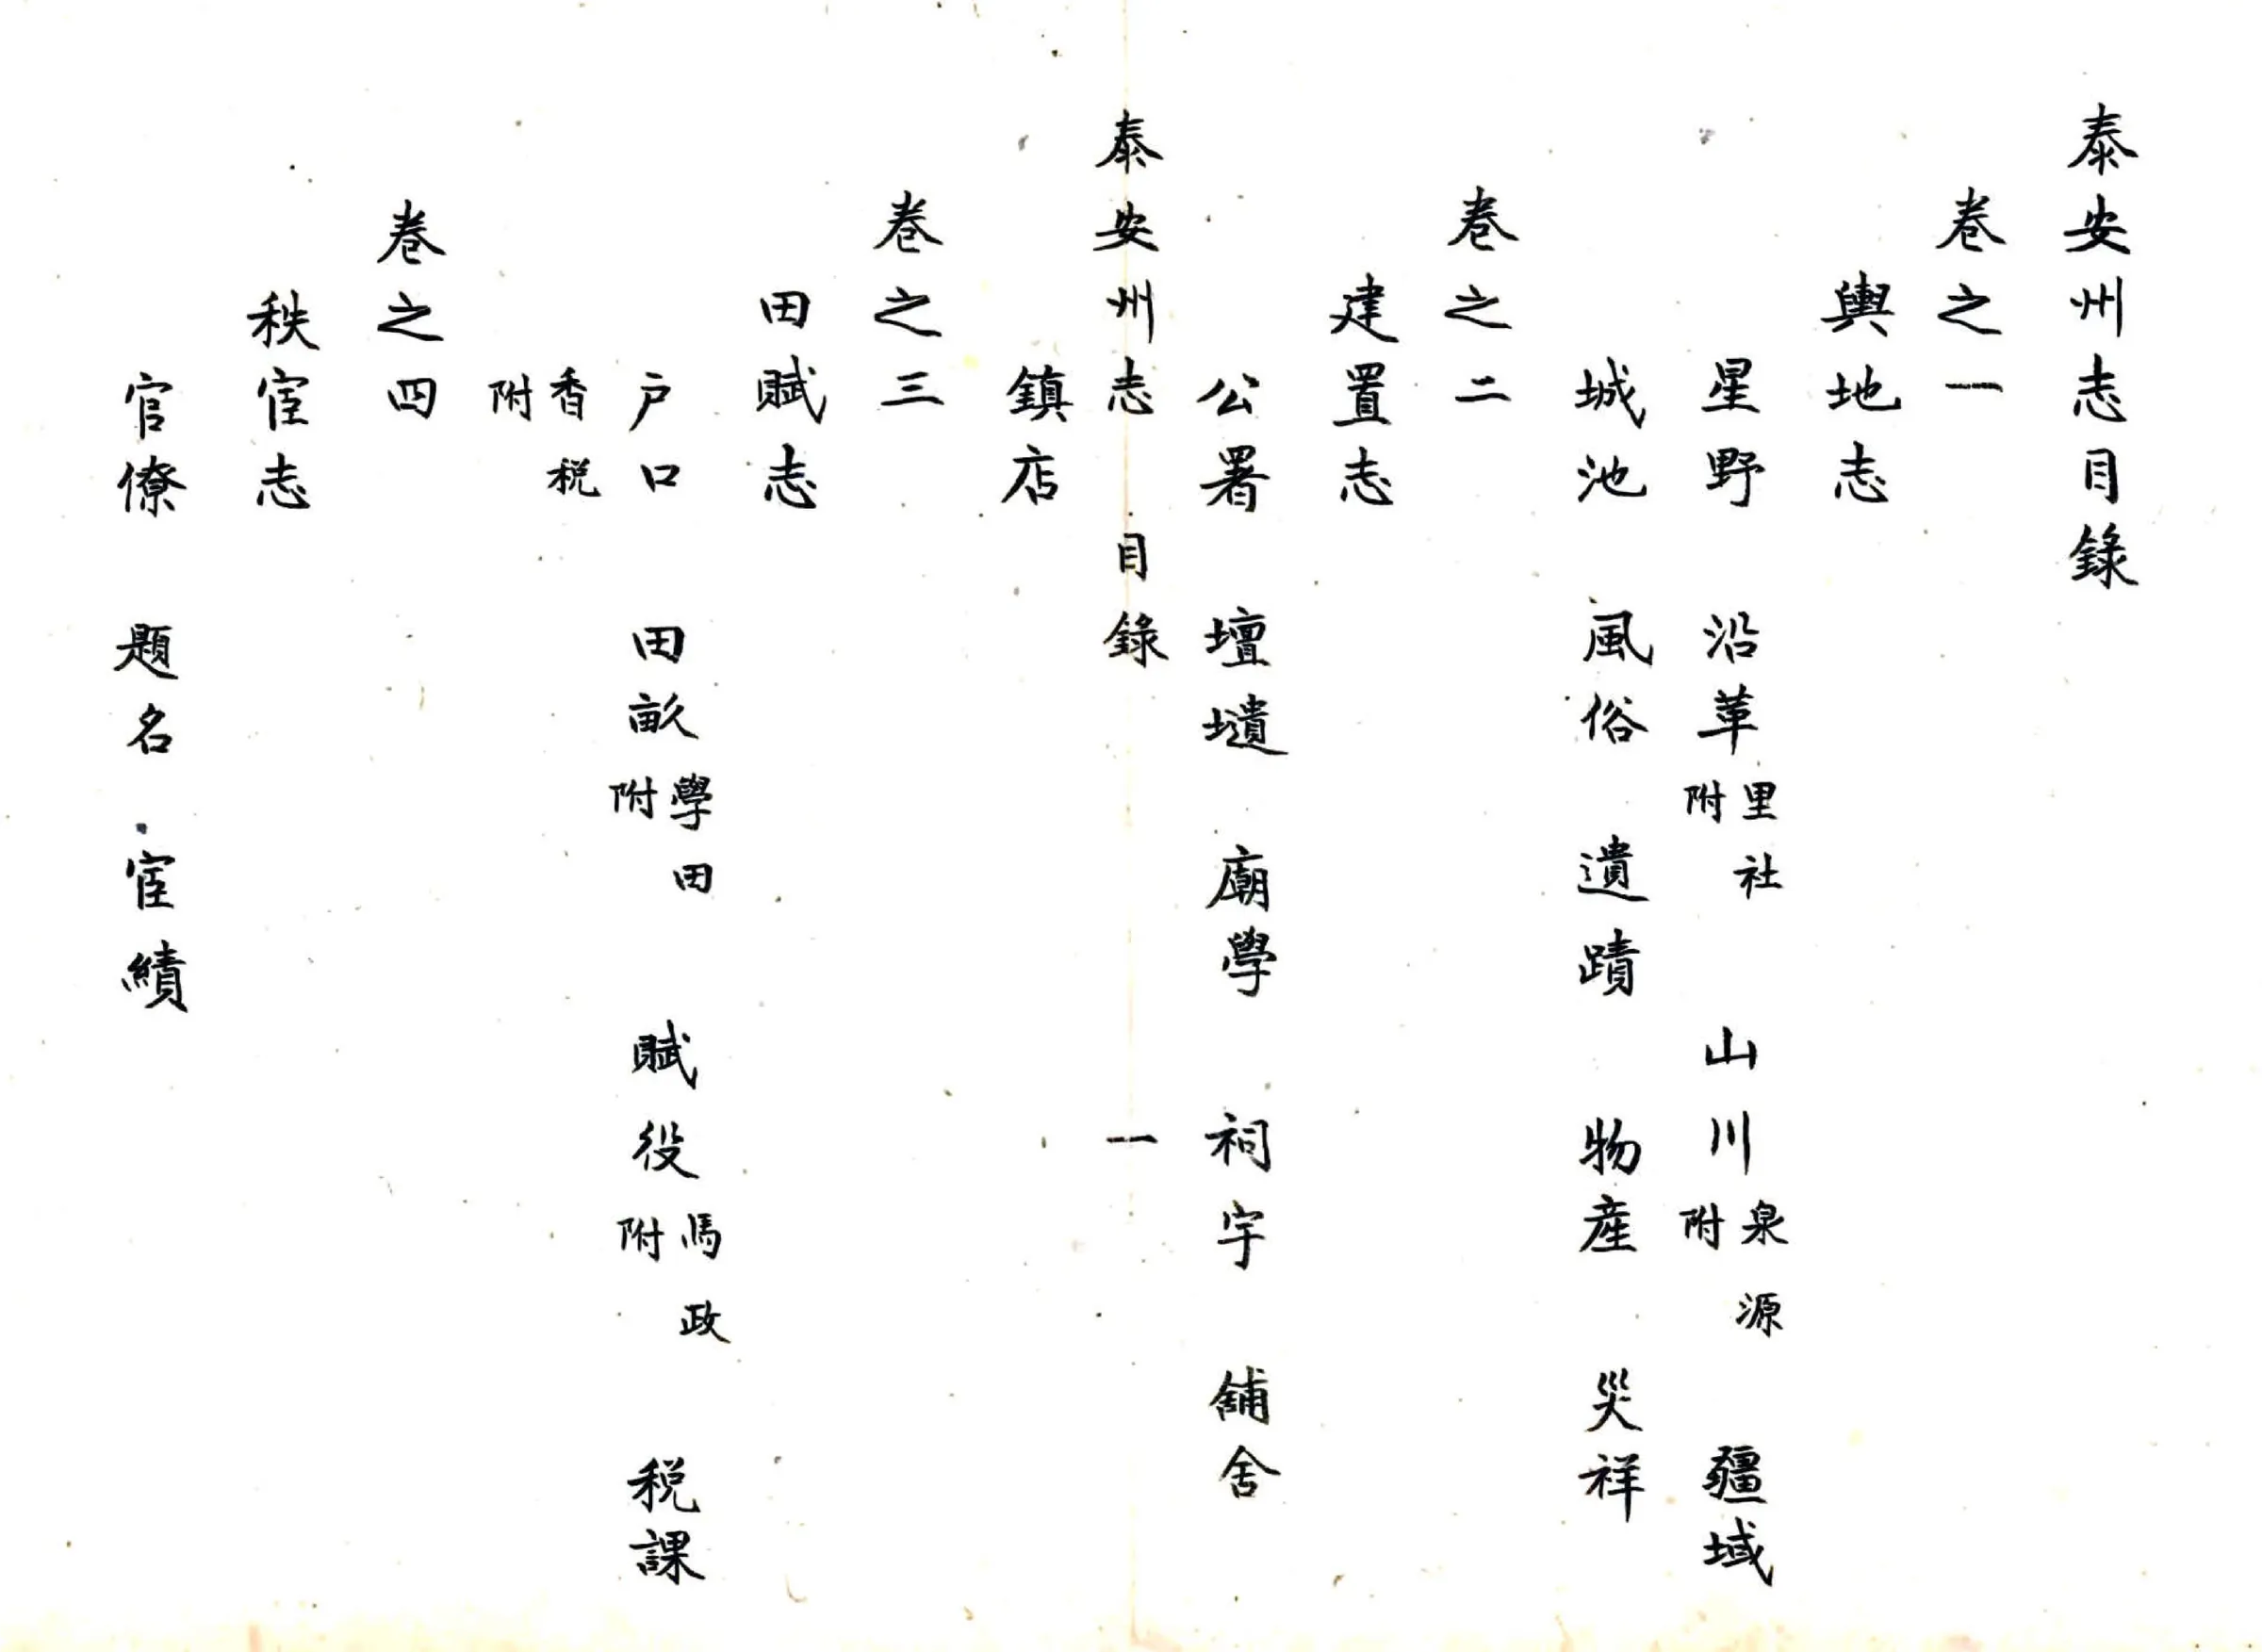 泰安州志目錄
卷之一
輿地志
星野 沿革里社附 山川泉源附 疆域
城池 風俗 遺蹟 物產 災祥
卷之二
建置志
公署 壇壝 廟學 祠宇 舖舍
泰安州志 目錄 一
鎮店
卷之三
田賦志
戶口 田畝學田附 賦役馬政附 稅課
香稅附
卷之四
秩宦志
官僚 題名 宦績